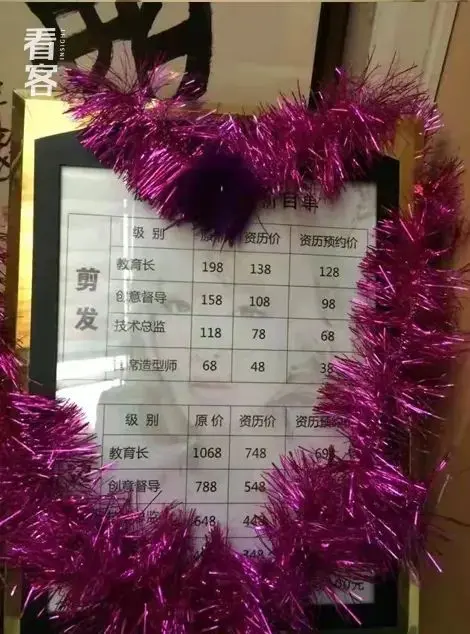 看客
INSIGHT
价目单
级 别 原价 资历价 资历预约价
剪发
教育长 198 138 128
创意督导 158 108 98
技术总监 118 78 68
首席造型师 68 48 38
级 别 原 价 资历价 资历预约价
教育长 1068 748
创意督导 788 548
总监 648
348